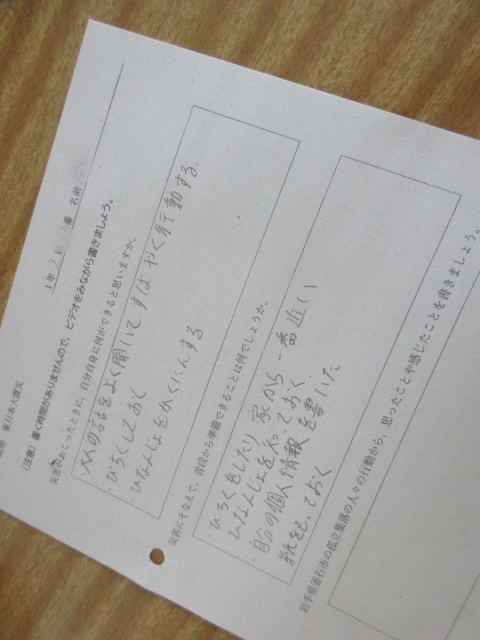 東日本大震災
(注意)書く時間がありませんので、ビデオをみながら書きましょう。
1年2 番 名前
災害がおこったときに、自分自身に何ができると思いますか。
大人の話をよく聞いてすばやく行動する。
・びちくしておく
ひなんじょをかくにんする
災害にそなえて、普段から準備できることは何でしょうか。
・びちくをしたり 家から一番近い
ひなんじょを知っておく。
・自分の個人情報を書いた
紙をとっておく
岩手県釜石市の孤立集落の人々の行動から、思ったことや感じたことを書きましょう。